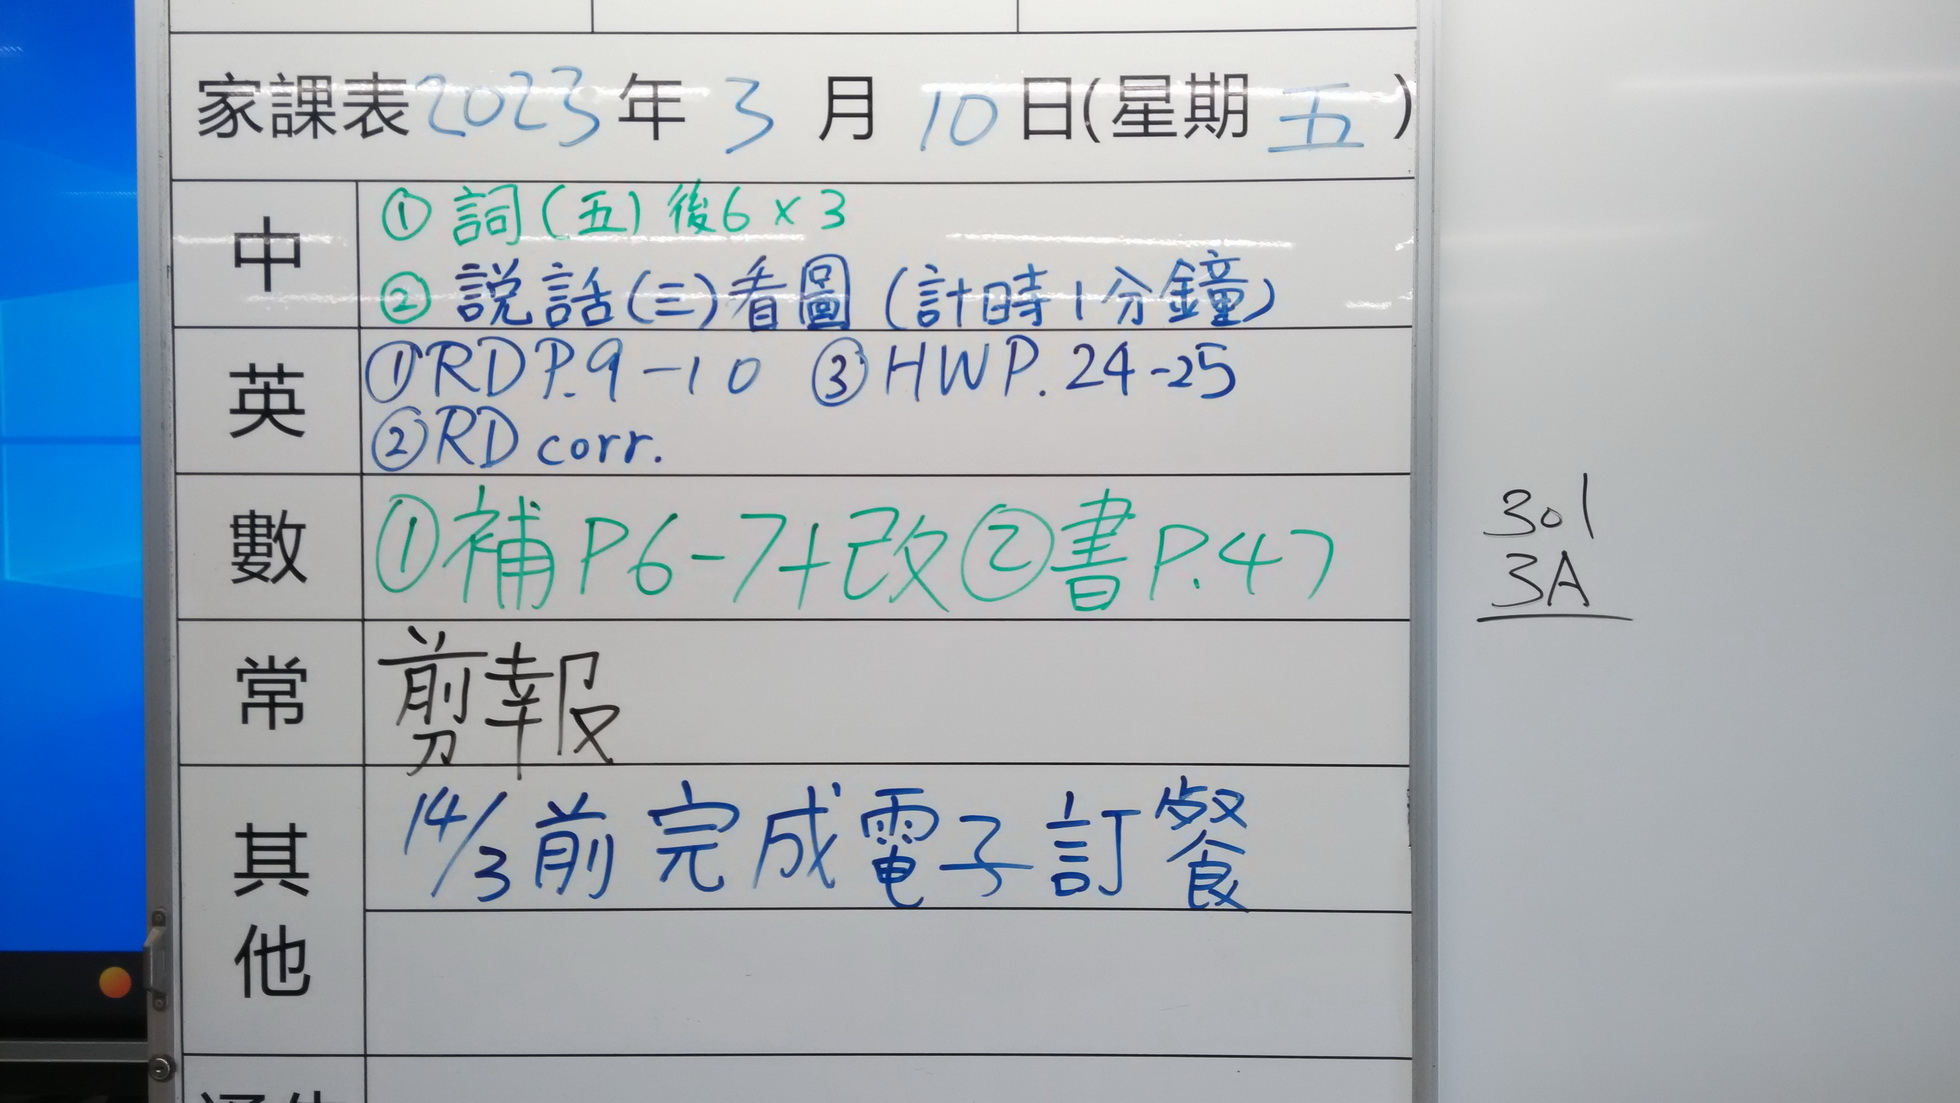 家課表 2023 年 3 月 10 日(星期 五 )
中
① 詞(五)後6 x 3
② 説話(三)看圖 (計時1分鐘)
英
① RD P.9-10 ③ HW P. 24-25
② RD corr.
數
① 補 P6-7+改 ② 書 P.47
常
剪報
其他
14/3 前完成電子訂餐
301
3A